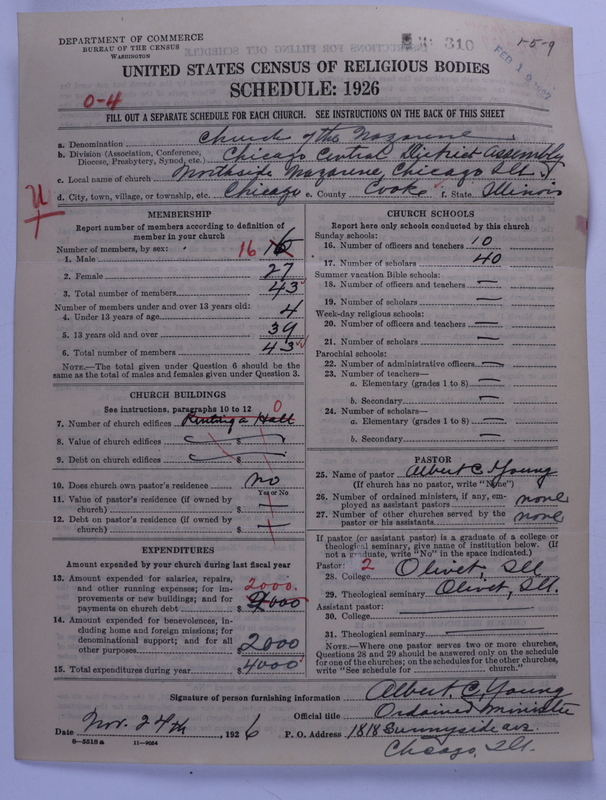 DEPARTMENT OF COMMERCE
BUREAU OF THE CENSUS
WASHINGTON
310
1-5-9
FEB 1 9 1927
UNITED STATES CENSUS OF RELIGIOUS BODIES
SCHEDULE: 1926
0-4
FILL OUT A SEPARATE SCHEDULE FOR EACH CHURCH. SEE INSTRUCTIONS ON THE BACK OF THIS SHEET
a. Denomination Church of the Nazarene
b. Division (Association, Conference, Diocese, Presbytery, Synod, etc.) Chicago Central District Assembly
c. Local name of church Northside Nazarene, Chicago Ill.
d. City, town, village, or township, etc. Chicago e. County Cooke f. State Illinois
U
MEMBERSHIP
Report number of members according to definition of
member in your church
Number of members, by sex:
1. Male 16 16
2. Female 27
3. Total number of members 43
Number of members under and over 13 years old:
4. Under 13 years of age 4
5. 13 years old and over 39
6. Total number of members 43
NOTE.—The total given under Question 6 should be
same as the total of males and females given under Question 3.
CHURCH BUILDINGS
See instructions, paragraphs 10 to 12
7. Number of church edifices Renting a Hall 0
8. Value of church edifices $
9. Debt on church edifices $
10. Does church own pastor's residence No
Yes or No
11. Value of pastor's residence (if owned by
church) $ —
12. Debt on pastor's residence (if owned by
church) $ —
EXPENDITURES
Amount expended by your church during last fiscal year
13. Amount expended for salaries, repairs,
and other running expenses; for im-
provements or new buildings; and for
payments on church debt $ 2000.
14. Amount expended for benevolences, in-
cluding home and foreign missions; for
denominational support; and for all
other purposes 2000
15. Total expenditures during year $4000
CHURCH SCHOOLS
Report here only schools conducted by this church
Sunday schools:
16. Number of officers and teachers 10
17. Number of scholars 40
Summer vacation Bible schools:
18. Number of officers and teachers —
19. Number of scholars —
Week-day religious schools:
20. Number of officers and teachers —
21. Number of scholars —
Parochial schools:
22. Number of administrative officers —
23. Number of teachers—
a. Elementary (grades 1 to 8) —
b. Secondary —
24. Number of scholars—
a. Elementary (grades 1 to 8) —
b. Secondary —
PASTOR
25. Name of pastor Albert C. Young
(If church has no pastor, write "None")
26. Number of ordained ministers, if any, em-
ployed as assistant pastors none
27. Number of other churches served by the
pastor or his assistants none
If pastor (or assistant pastor) is a graduate of a college or
theological seminary, give name of institution below. (If
not a graduate, write "No" in the space indicated.)
Pastor: 2
28. College Olivet, Ill
29. Theological seminary Olivet, Ill.
Assistant pastor:
30. College
31. Theological seminary
NOTE.—Where one pastor serves two or more churches,
Questions 28 and 29 should be answered only on the schedule
for one of the churches; on the schedules for the other churches,
write "See schedule for church."
Signature of person furnishing information Albert. C. Young
Official title Ordained Minister
Date Nov. 24th, 1926 P. O. Address 1818 Sunnyside ave.
Chicago, Ill.
8—5518 a 11—9084